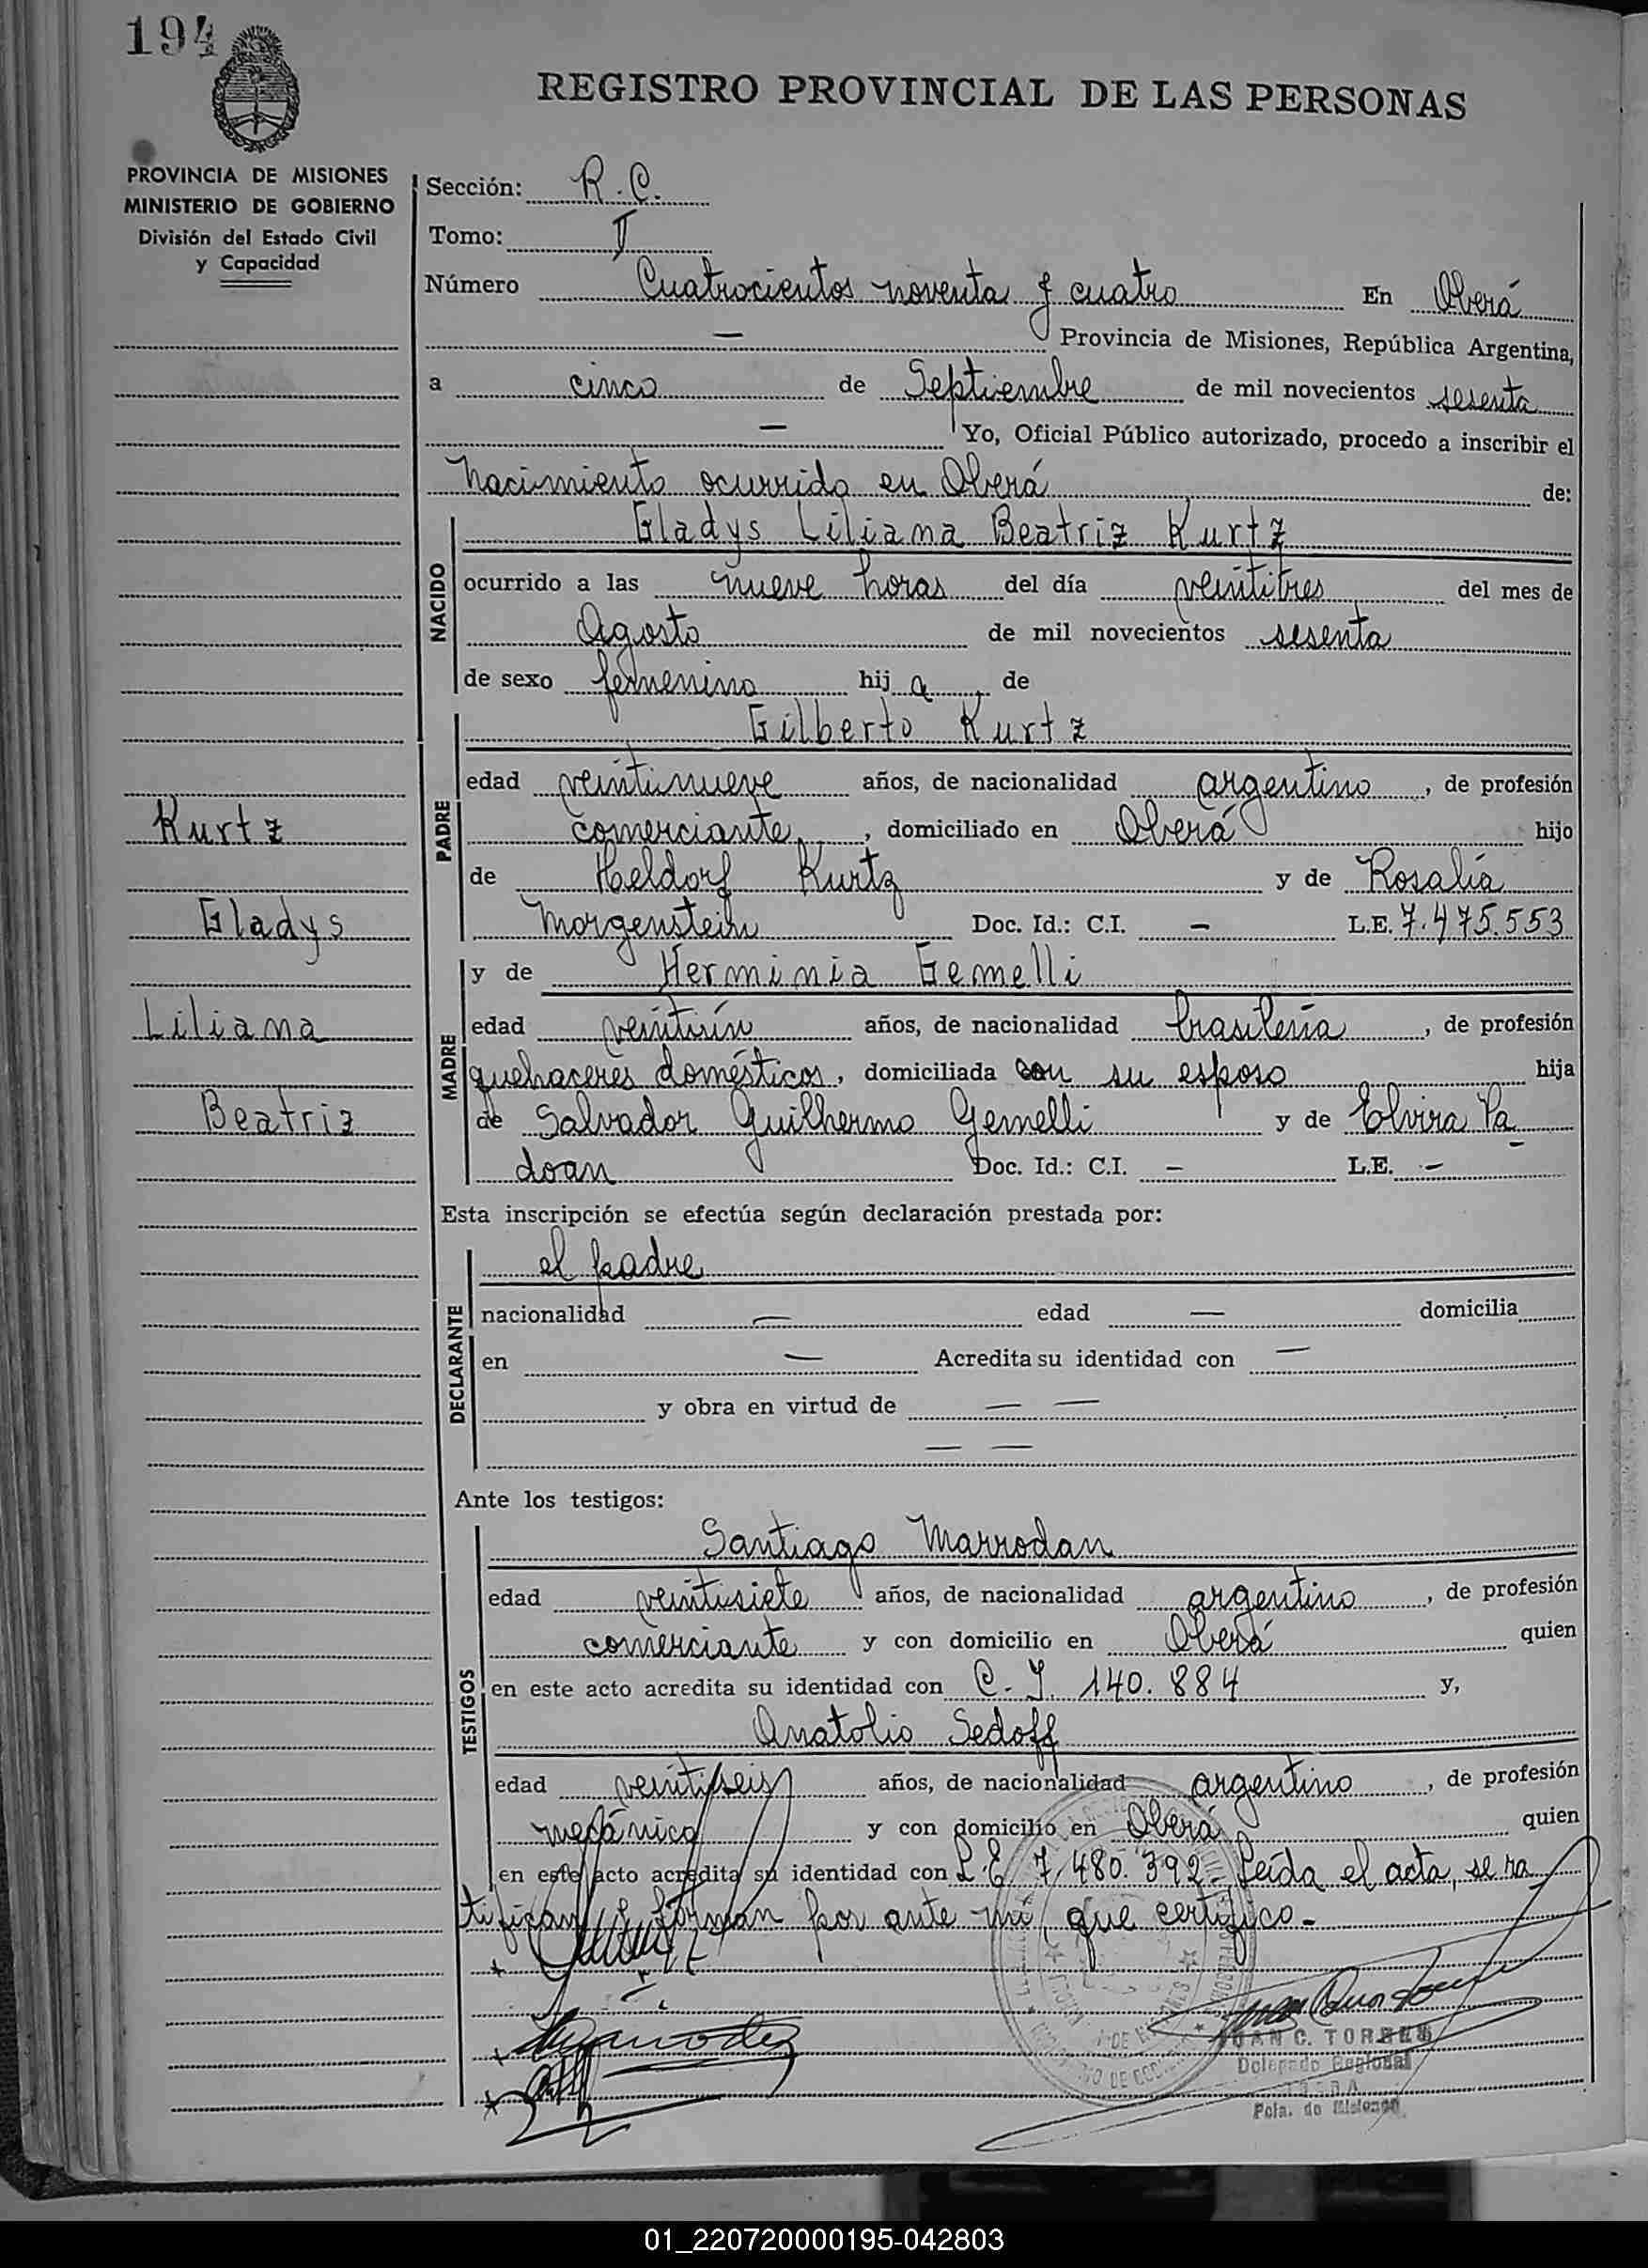 194
REGISTRO PROVINCIAL DE LAS PERSONAS
PROVINCIA DE MISIONES
MINISTERIO DE GOBIERNO
División del Estado Civil
y Capacidad
Sección: R. C.
Tomo: V
Número Cuatrocientos noventa y cuatro En Oberá
— Provincia de Misiones, República Argentina,
a cinco de Septiembre de mil novecientos sesenta
— Yo, Oficial Público autorizado, procedo a inscribir el
nacimiento ocurrido en Oberá de:
NACIDO
Gladys Liliana Beatriz Kurtz
ocurrido a las nueve horas del día veintitres del mes de
Agosto de mil novecientos sesenta
de sexo femenino hij a, de
PADRE
Gilberto Kurtz
edad veintinueve años, de nacionalidad argentino, de profesión
comerciante, domiciliado en Oberá hijo
de Heldorf Kurtz y de Rosalía
Morgenstein Doc. Id.: C.I. — L.E. 7.475.553
MADRE
y de Herminia Gemelli
edad veintiún años, de nacionalidad brasileña, de profesión
quehaceres domésticos, domiciliada con su esposo hija
de Salvador Guilhermo Gemelli y de Elvira Pa
doan Doc. Id.: C.I. — L.E. —
Kurtz
Gladys
Liliana
Beatriz
Esta inscripción se efectúa según declaración prestada por:
DECLARANTE
el padre
nacionalidad — edad — domicilia
en — Acredita su identidad con —
y obra en virtud de — —
— —
Ante los testigos:
TESTIGOS
Santiago Marrodan
edad veintisiete años, de nacionalidad argentino, de profesión
comerciante y con domicilio en Oberá quien
en este acto acredita su identidad con C. I. 140.884 y,
Anatolio Sedoff
edad veintiseis años, de nacionalidad argentino, de profesión
mecánico y con domicilio en Oberá quien
en este acto acredita su identidad con L.E 7.480.392- Leída el acta, se ra
tifican y firman por ante mí, que certifico.-
JUAN C. TORRES
Delegado Regional
Pcia. de Misiones
01_220720000195-042803